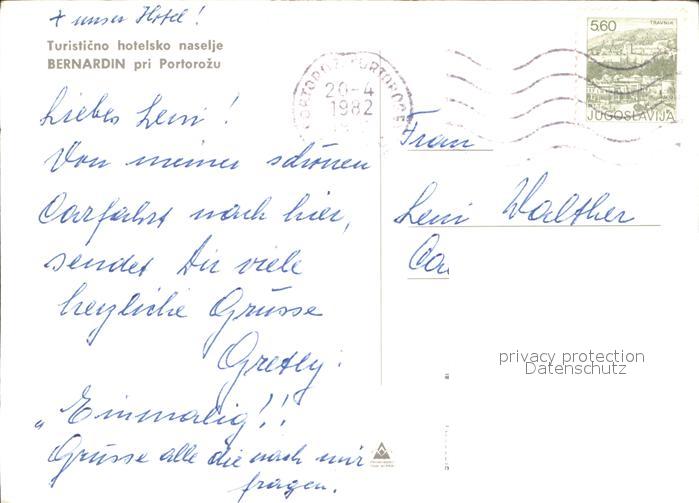 + unser Hotel!
Turistično hotelsko naselje
BERNARDIN pri Portorožu
Liebes Leni!
Von meiner schönen
Carfahrt nach hier,
sendet Dir viele
herzliche Grüsse
Gretly.
„Einmalig!!
Grüsse alle die nach mir
fragen.
20-4
1982
5.60
TRAVNIK
JUGOSLAVIJA
Frau
Leni Walther
privacy protection
Datenschutz